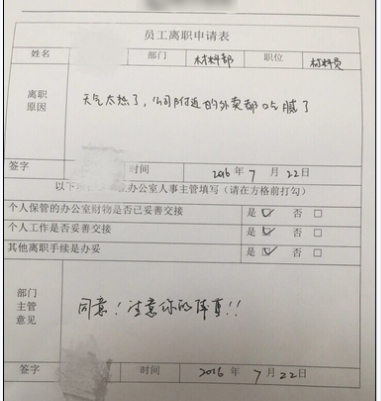 员工离职申请表
姓名 部门 材料部 职位 材料员
离职原因 天气太热了，公司附近的外卖都吃腻了
签字 时间 2016年7月22日
以下 办公室人事主管填写（请在方格前打勾）
个人保管的办公室财物是否已妥善交接 是☑ 否□
个人工作是否妥善交接 是☑ 否□
其他离职手续是办妥 是☑ 否□
部门主管意见 同意！注意你的阵真！！
签字 时间 2016年7月22日